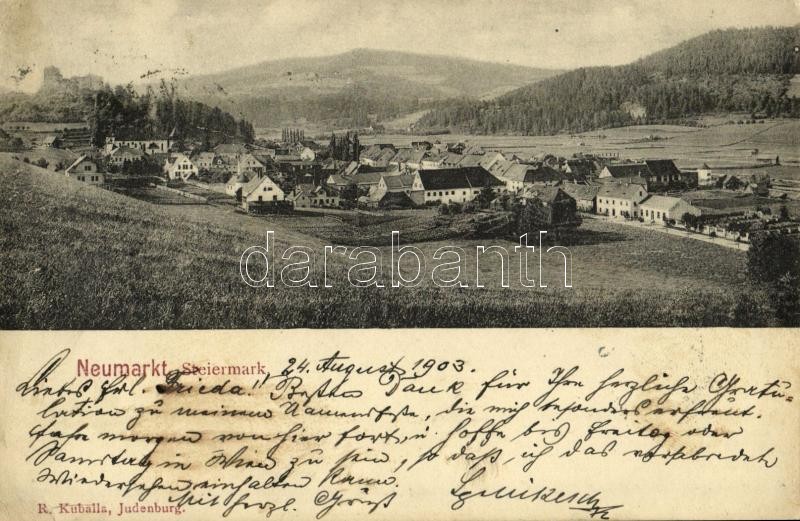 darabanth
Neumarkt, Steiermark, 24. August 1903.
Liebes Frl. Frieda!! Besten Dank für Ihre herzliche Gratu-
lation zu meinem Namensfeste, die mich besonders erfreut.
fahre morgen von hier fort, u. hoffe bis Freitag oder
Samstag in Wien zu sein, so daß ich das verabredete
Wiedersehen einhalten kann.
Mit herzl. Gruß
R. Kuballa, Judenburg.